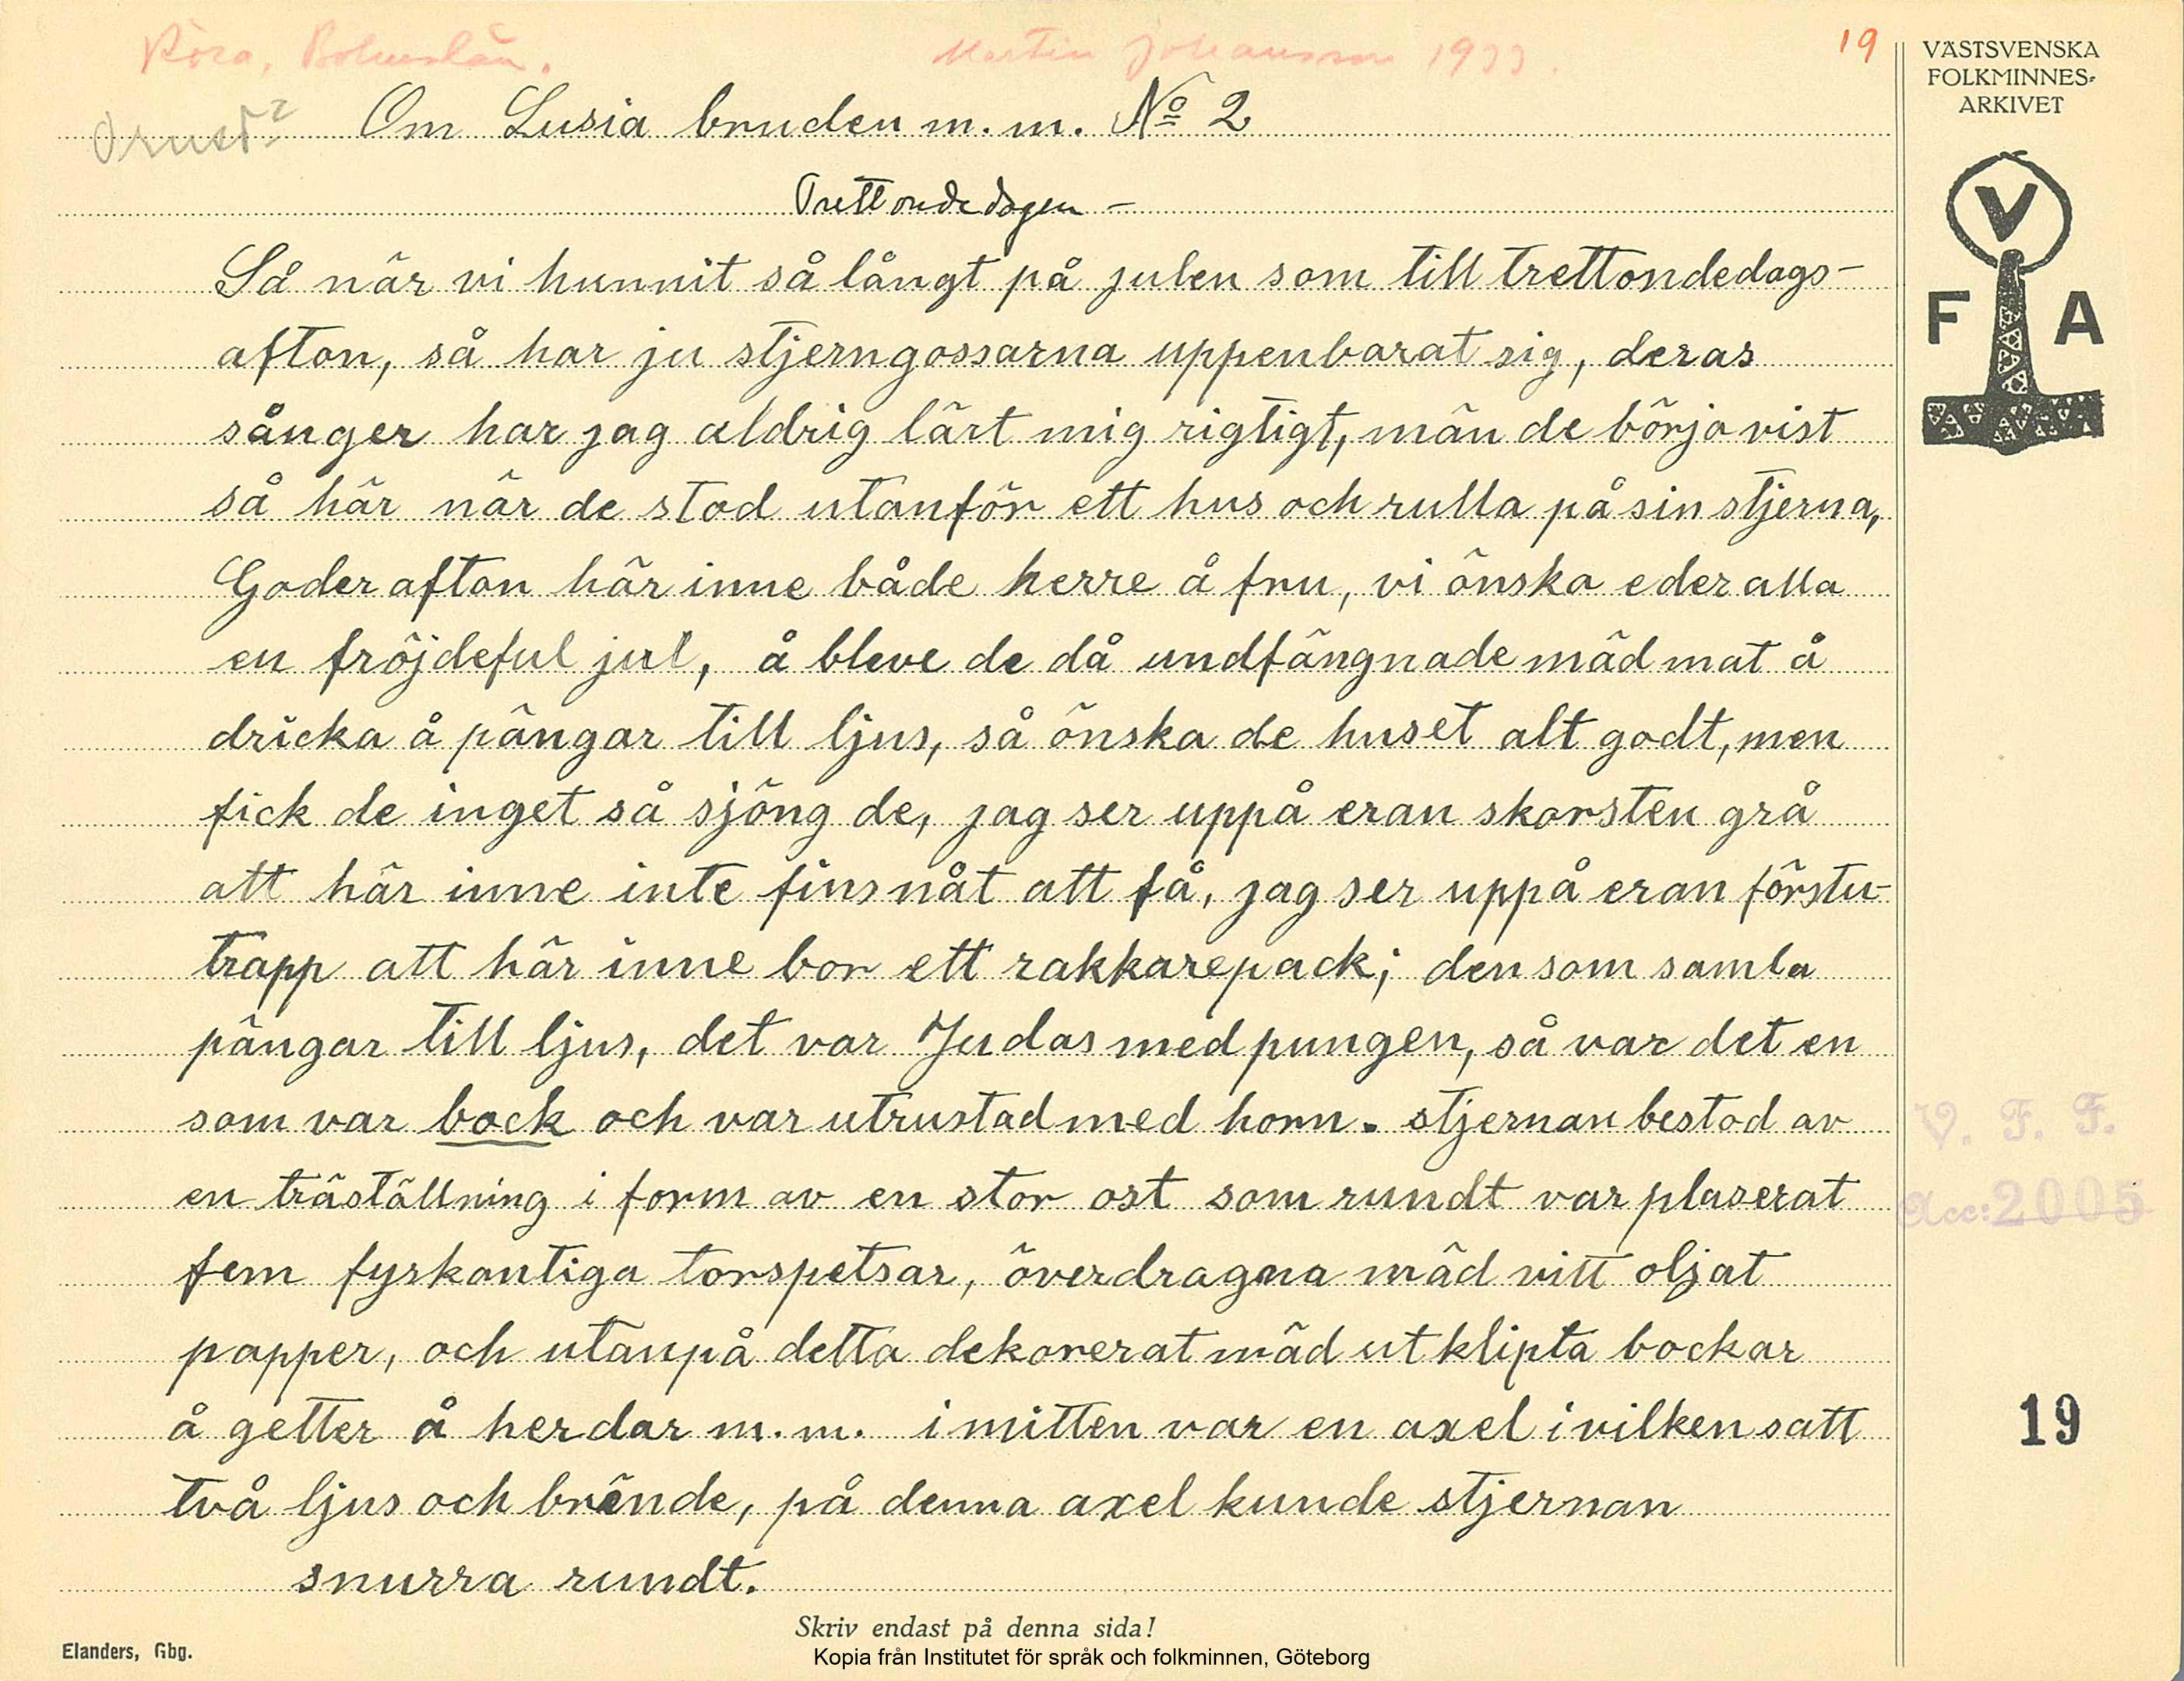 Röra, Bohuslän. Martin Johansson 1933. 19
Orust?
Om Lusia bruden m.m. Nº 2
Trettondedagen –
Så när vi hunnit så långt på julen som till trettondedags-
afton, så har ju stjerngossarna uppenbarat sig, deras
sånger har jag aldrig lärt mig rigtigt, män de börja vist
så här när de stod utanför ett hus och rulla på sin stjerna,
Goder afton här inne både herre å fru, vi önska eder alla
en fröjdeful jul, å bleve de då undfängnade mäd mat å
dricka å pängar till ljus, så önska de huset alt godt, men
fick de inget så sjöng de, jag ser uppå eran skorsten grå
att här inne inte fins nåt att få, jag ser uppå eran förstu-
trapp att här inne bor ett rakkarepack; den som samla
pängar till ljus, det var Judas med pungen, så var det en
som var bock och var utrustad med horn. stjernan bestod av
en träställning i form av en stor ost som rundt var plaserat
fem fyrkantiga torspetsar, överdragna mäd vitt oljat
papper, och utanpå detta dekorerat mäd utklipta bockar
å getter å herdar m.m. i mitten var en axel i vilken satt
två ljus och brände, på denna axel kunde stjernan
snurra rundt.
Skriv endast på denna sida!
Elanders, Gbg.
Kopia från Institutet för språk och folkminnen, Göteborg
VÄSTSVENSKA
FOLKMINNES-
ARKIVET
V
F A
V. F. F.
Acc: 2005
19